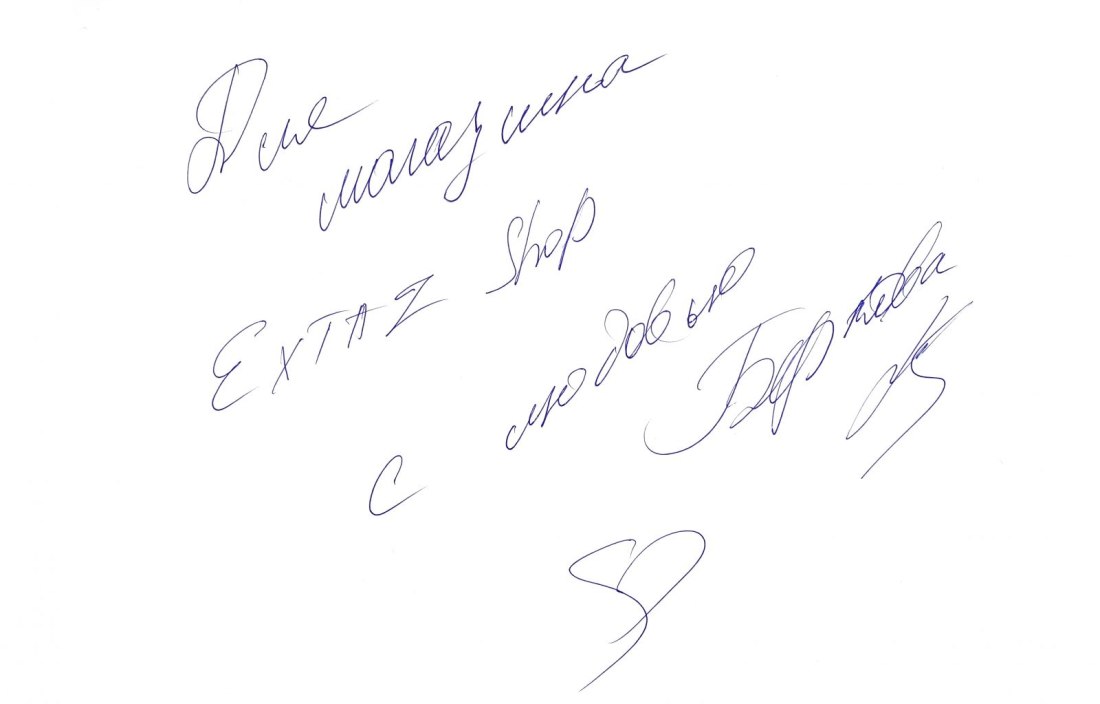 Для
магазина
EXTAZ Shop
с любовью